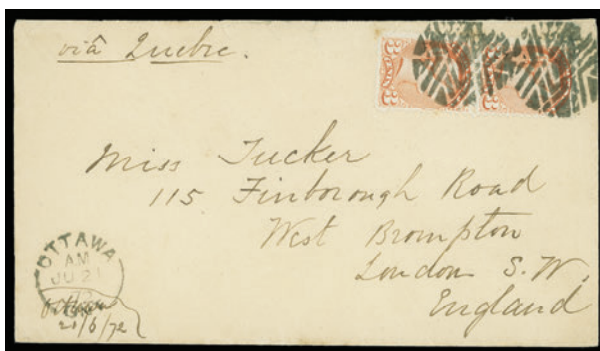 viâ Quebec.
3 3
Miss Tucker
115 Finborough Road
West Brompton
London S. W.
England
OTTAWA
AM
JU 21
72
21/6/72